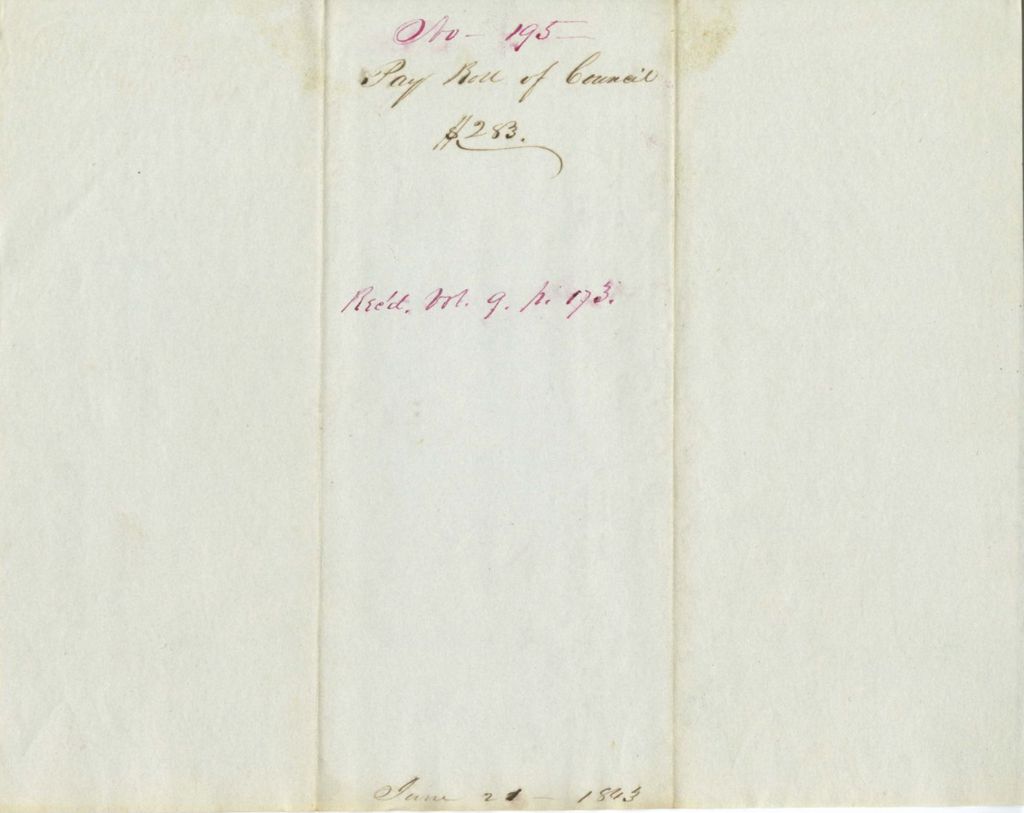 No - 195 -
Pay Roll of Council
$283.
Rec'd. Vol. 9. p. 173.
June 21 - 1843